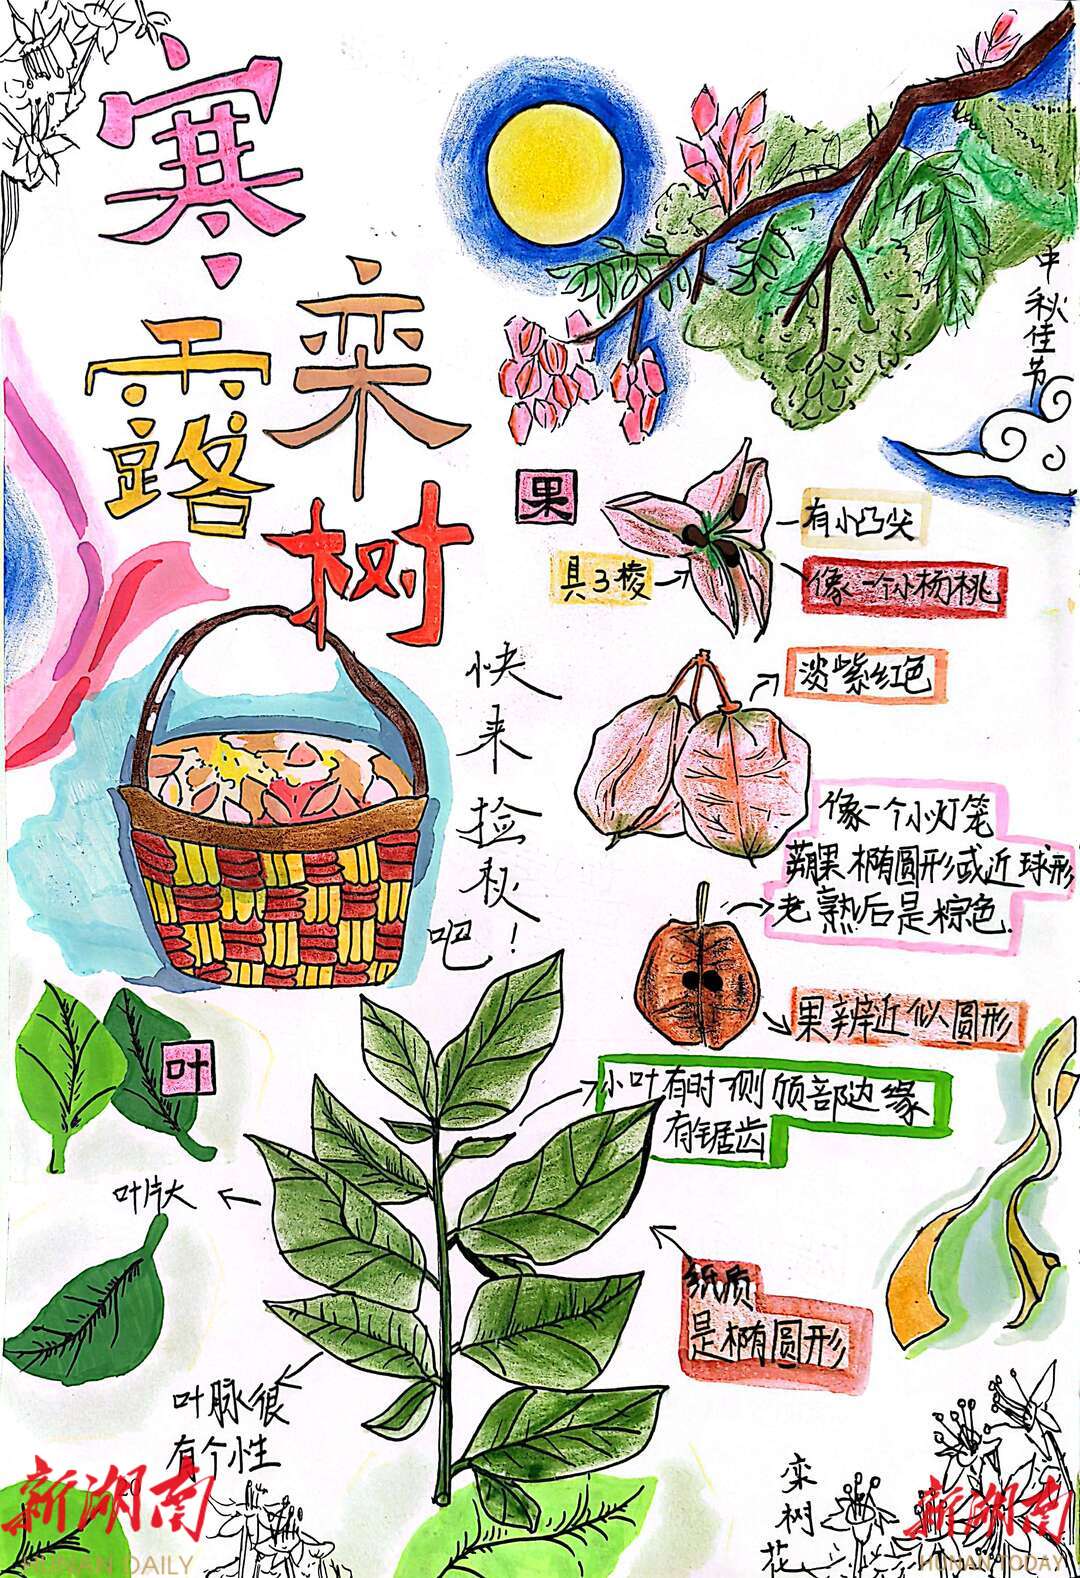 寒
露
栾
树
中秋佳节
果
有小凸尖
具3棱
像一个小杨桃
淡紫红色
快来捡秋吧！
像一个小灯笼
蒴果椭圆形或近球形
老熟后是棕色.
果瓣近似圆形
叶
小叶有时一侧顶部边缘
有锯齿
叶片大
纸质
是椭圆形
叶脉很
有个性
栾树花
新湖南
HUNAN DAILY
新湖南
HUNAN TODAY